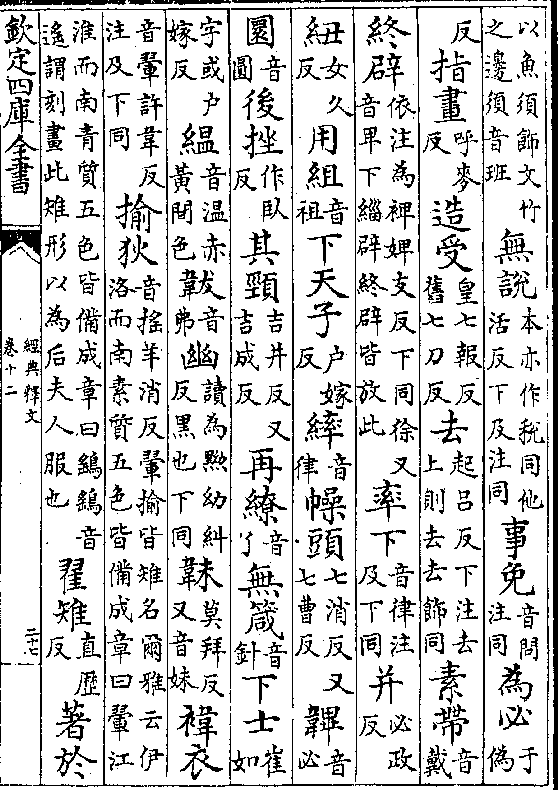 以魚須飾文竹之邊須音班無說本亦作稅同他活反下及注同事免音問注同為必于偽
反指畫呼麥反造受皇七報反舊七刀反去起呂反下注去上則去去飾同素帶音戴
終辟依注為裨婢支反下同徐又音卑下緇辟終辟皆放此率下音律注及下同并必政反
紐女久反用組音祖下天子户嫁反繂音律幧頭七消反又七曹反韠音必
圜音圓後挫作臥反其頸吉井反又吉成反再繚音了無箴音針下士崔如
字或户嫁反縕音温赤黃間色韍音弗幽讀為黝幼糾反黑也下同韎莫拜反又音妹褘衣
音翬許韋反注及下同揄狄音搖羊消反翬揄皆雉名爾雅云伊洛而南素質五色皆備成章曰翬江
淮而南青質五色皆備成章曰鷂鷂音遙謂刻畫此雉形以為后夫人服也翟雉直歷反著於
欽定四庫全書
經典釋文
卷十二
二十七